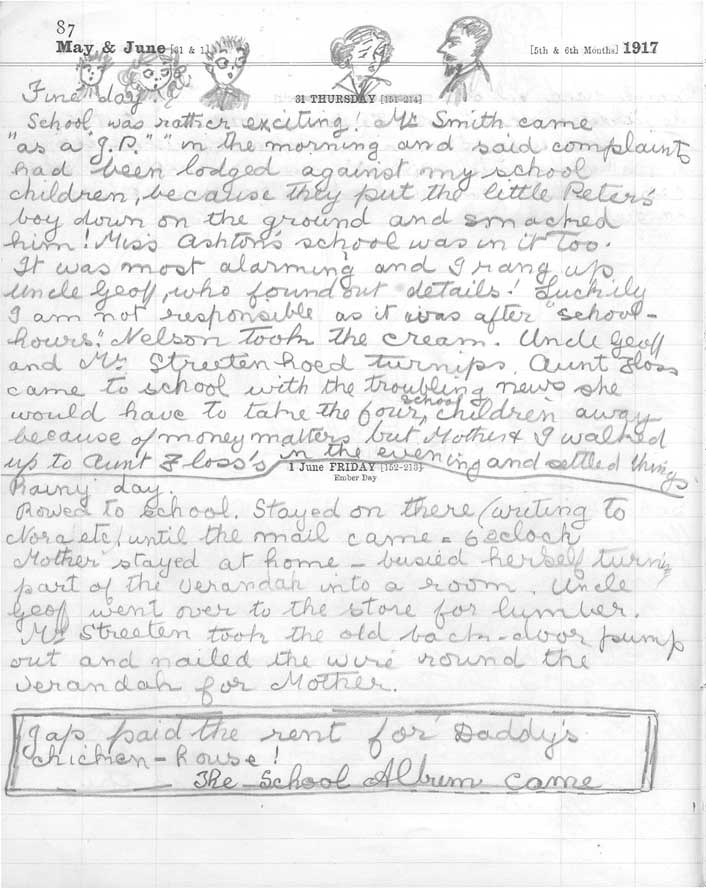 87
May & June [31 & 1] [5th & 6th Months] 1917
31 THURSDAY [151-214]
Fine day!
School was rather exciting! Mr Smith came
"as a "J.P."" in the morning and said complaints
had been lodged against my school
children, because they put the little Peter's
boy down on the ground and smacked
him! Miss Ashton's school was in it too.
It was most alarming and I rang up
Uncle Geoff, who found out details! Luckily
I am not responsible as it was after "school-
hours." Nelson took the cream. Uncle Geoff
and Mr Streeten hoed turnips. Aunt Floss
came to school with the troubling news she
would have to take the four school children away
because of money matters but Mother & I walked
up to Aunt Floss's in the evening and settled things
1 June FRIDAY [152-213]
Ember Day
Rainy day.
Rowed to school. Stayed on there (writing to
Nora etc) until the mail came = 6 oclock
Mother stayed at home - busied herself turning
part of the verandah into a room. Uncle
Geoff went over to the store for lumber.
Mr Streeten took the old back-door pump
out and nailed the wire round the
verandah for Mother.
Jap paid the rent for Daddy's
chicken-house!
The School Album came